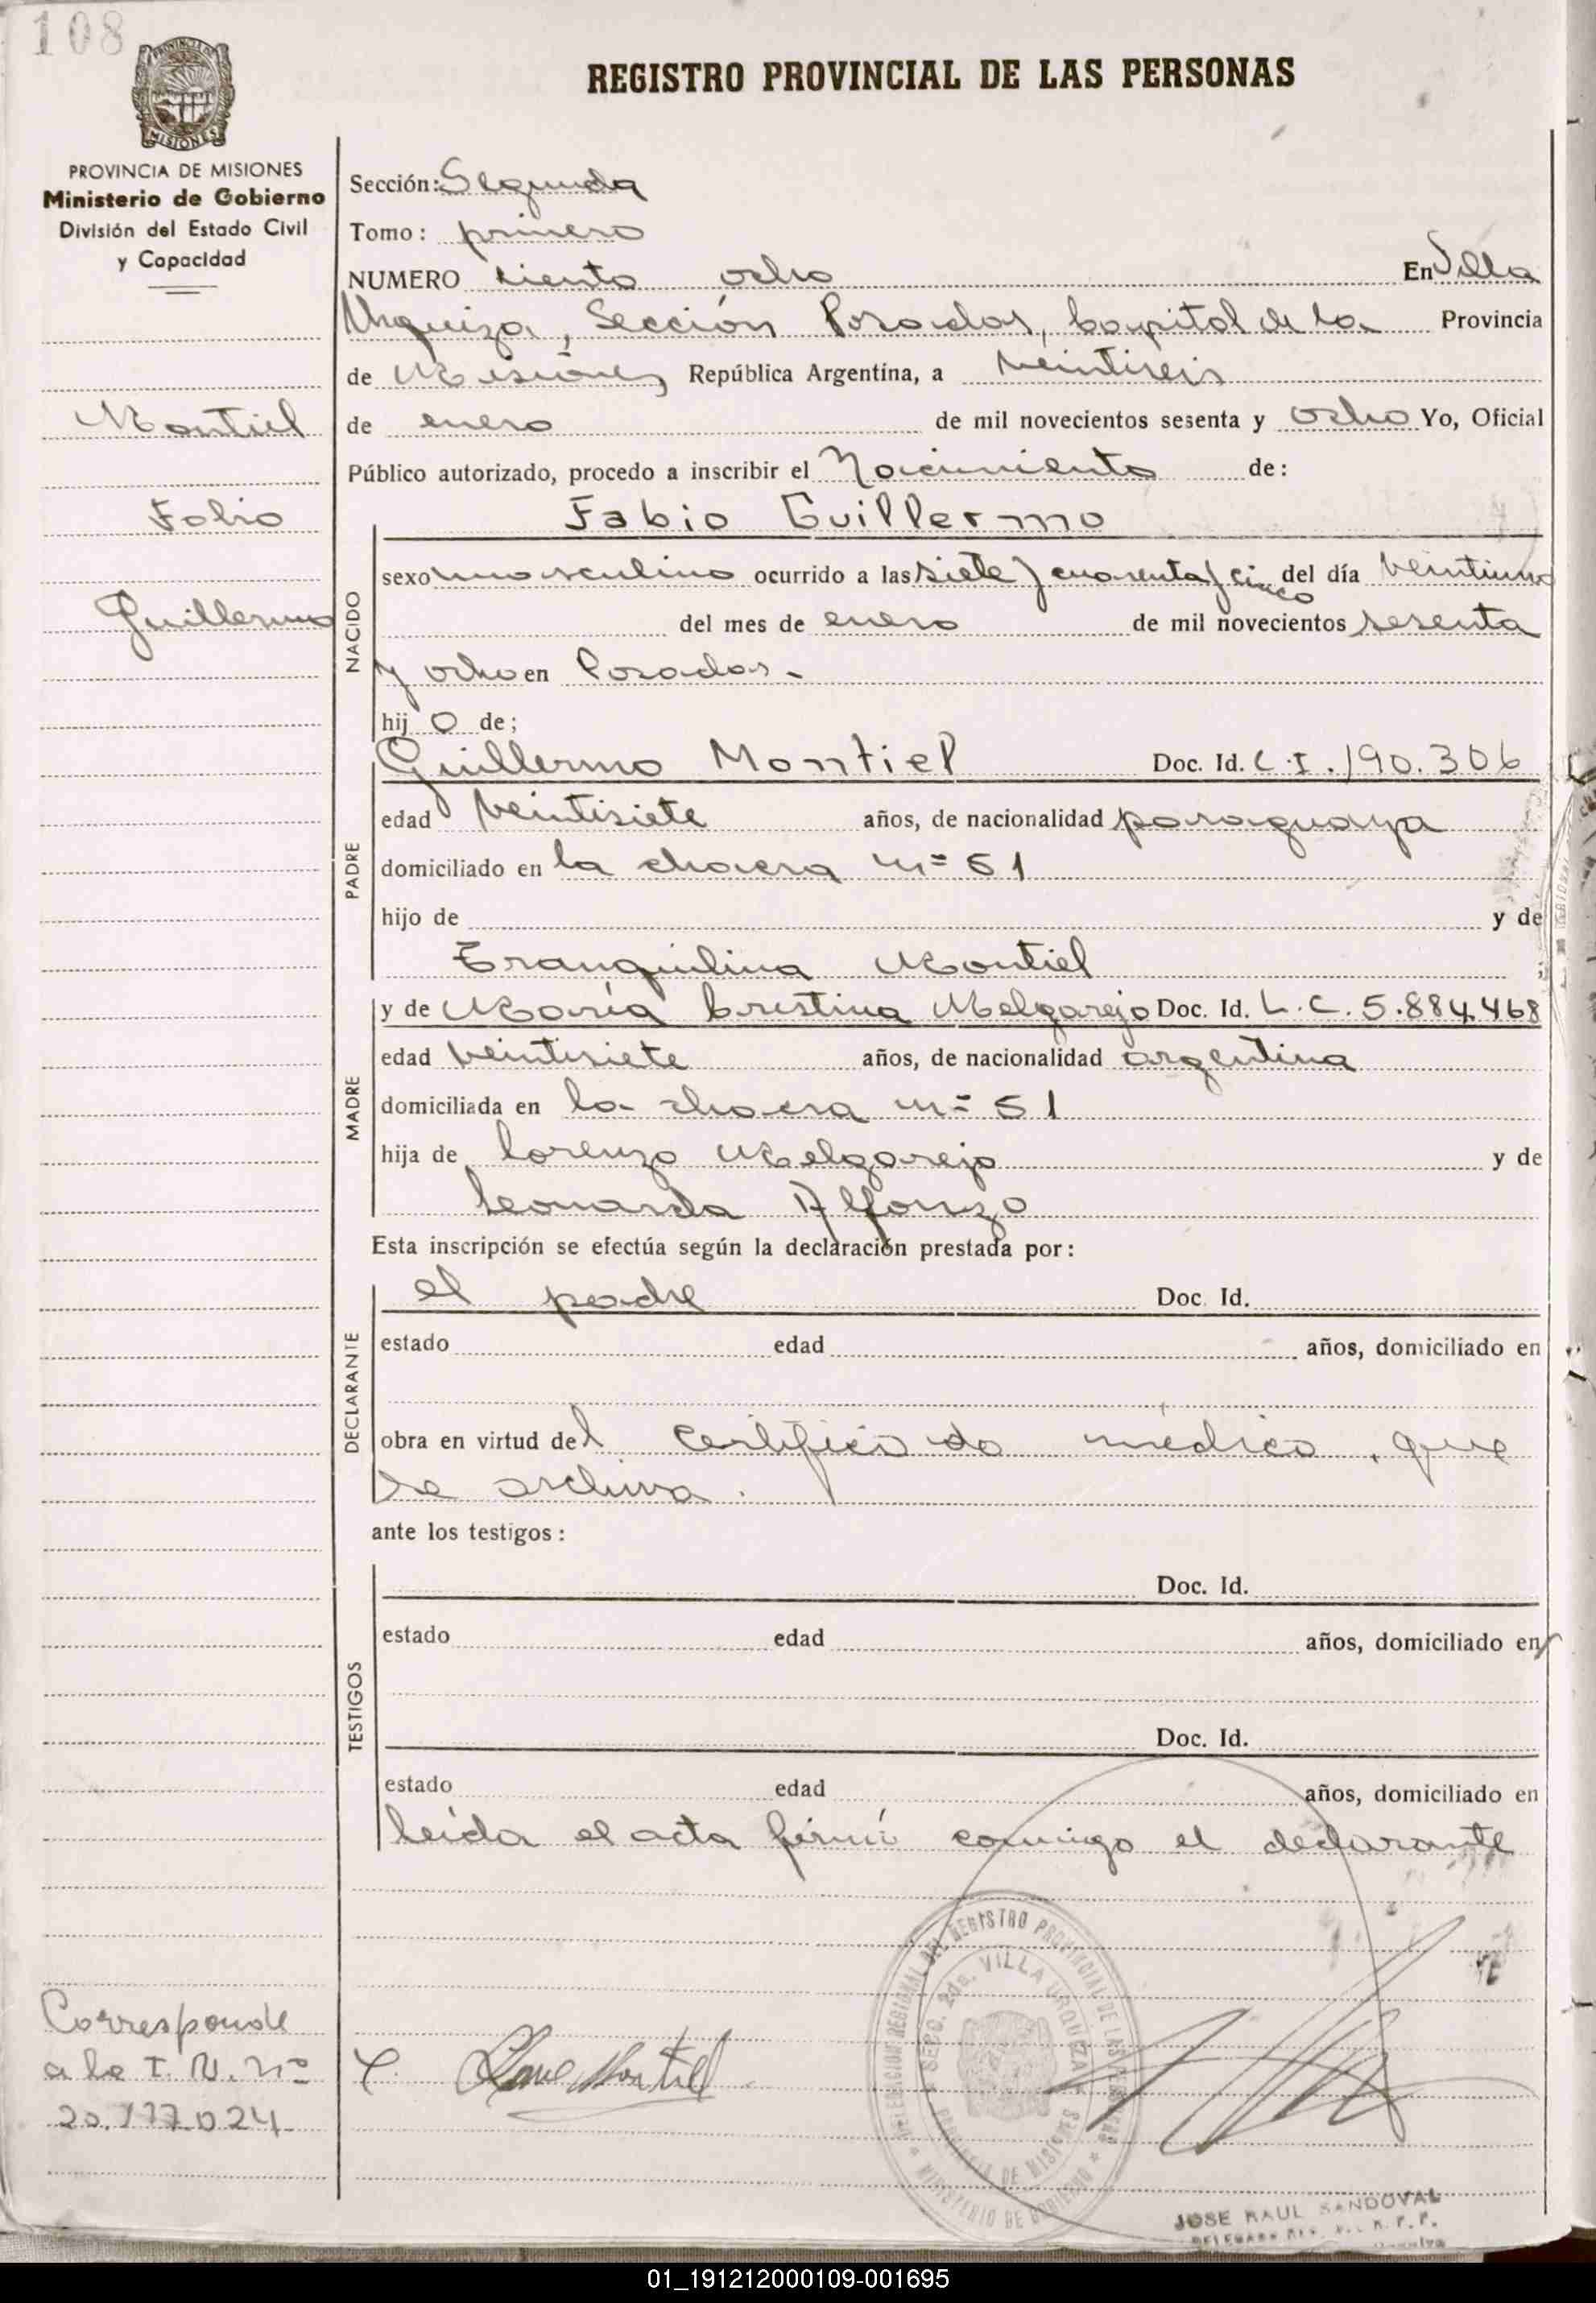 108
PROVINCIA DE MISIONES
MISIONES
PROVINCIA DE MISIONES
Ministerio de Gobierno
División del Estado Civil
y Capacidad
Montiel
Fabio
Guillermo
Corresponde
a la I. N. Nº
20.177.024
REGISTRO PROVINCIAL DE LAS PERSONAS
Sección: Segunda
Tomo: primero
NUMERO ciento ocho En Villa
Urquiza, Sección Posadas, Capital de la Provincia
de Misiones República Argentina, a veintiseis
de enero de mil novecientos sesenta y ocho Yo, Oficial
Público autorizado, procedo a inscribir el Nacimiento de:
Fabio Guillermo
NACIDO
sexo masculino ocurrido a las siete y cuarenta y cinco del día veintiuno
del mes de enero de mil novecientos sesenta
y ocho en Posadas.-
hij o de;
PADRE
Guillermo Montiel Doc. Id. C.I. 190.306
edad veintisiete años, de nacionalidad paraguaya
domiciliado en la chacra nº 51
hijo de y de
Tranquilina Montiel
MADRE
y de María Cristina Melgarejo Doc. Id. L.C. 5.884.468
edad veintisiete años, de nacionalidad argentina
domiciliada en la chacra nº 51
hija de Lorenzo Melgarejo y de
Leonarda Alfonzo
Esta inscripción se efectúa según la declaración prestada por:
DECLARANTE
el padre Doc. Id.
estado edad años, domiciliado en
obra en virtud del certificado médico, que
se archiva.
ante los testigos:
TESTIGOS
Doc. Id.
estado edad años, domiciliado en
Doc. Id.
estado edad años, domiciliado en
leída el acta firmó conmigo el declarante
DELEGACION REGIONAL DEL REGISTRO PROVINCIAL DE LAS PERSONAS
SECC. 2da. VILLA URQUIZA
PROVINCIA DE MISIONES
MINISTERIO DE GOBIERNO
Montiel
JOSE RAUL SANDOVAL
01_191212000109-001695